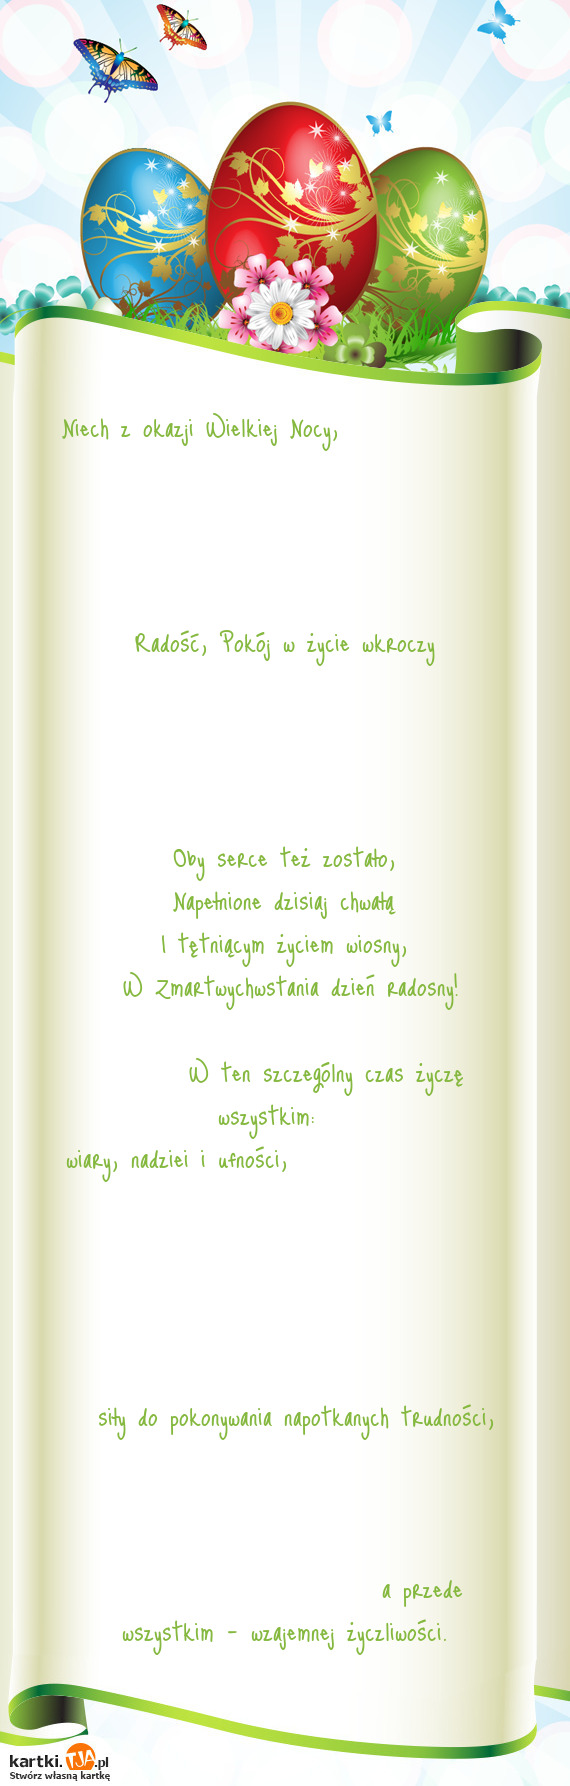 Niech z okazji Wielkiej Nocy,
Radość, Pokój w życie wkroczy
Oby serce też zostało,
Napełnione dzisiaj chwałą
I tętniącym życiem wiosny,
W Zmartwychwstania dzień radosny!
W ten szczególny czas życzę
wszystkim:
wiary, nadziei i ufności,
siły do pokonywania napotkanych trudności,
a przede
wszystkim - wzajemnej życzliwości.
kartki.TJA.pl
Stwórz własną kartkę